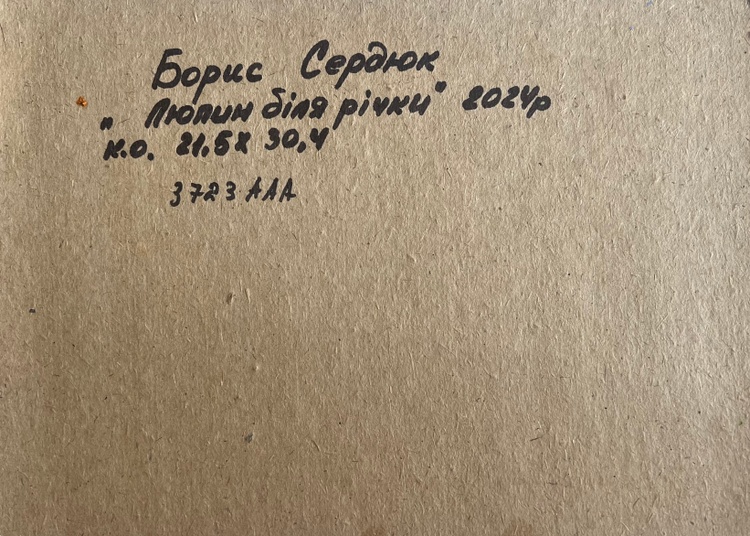 Борис Сердюк
„Люпин біля річки" 2024р
к.о. 21,5х 30,4
3723 ААА